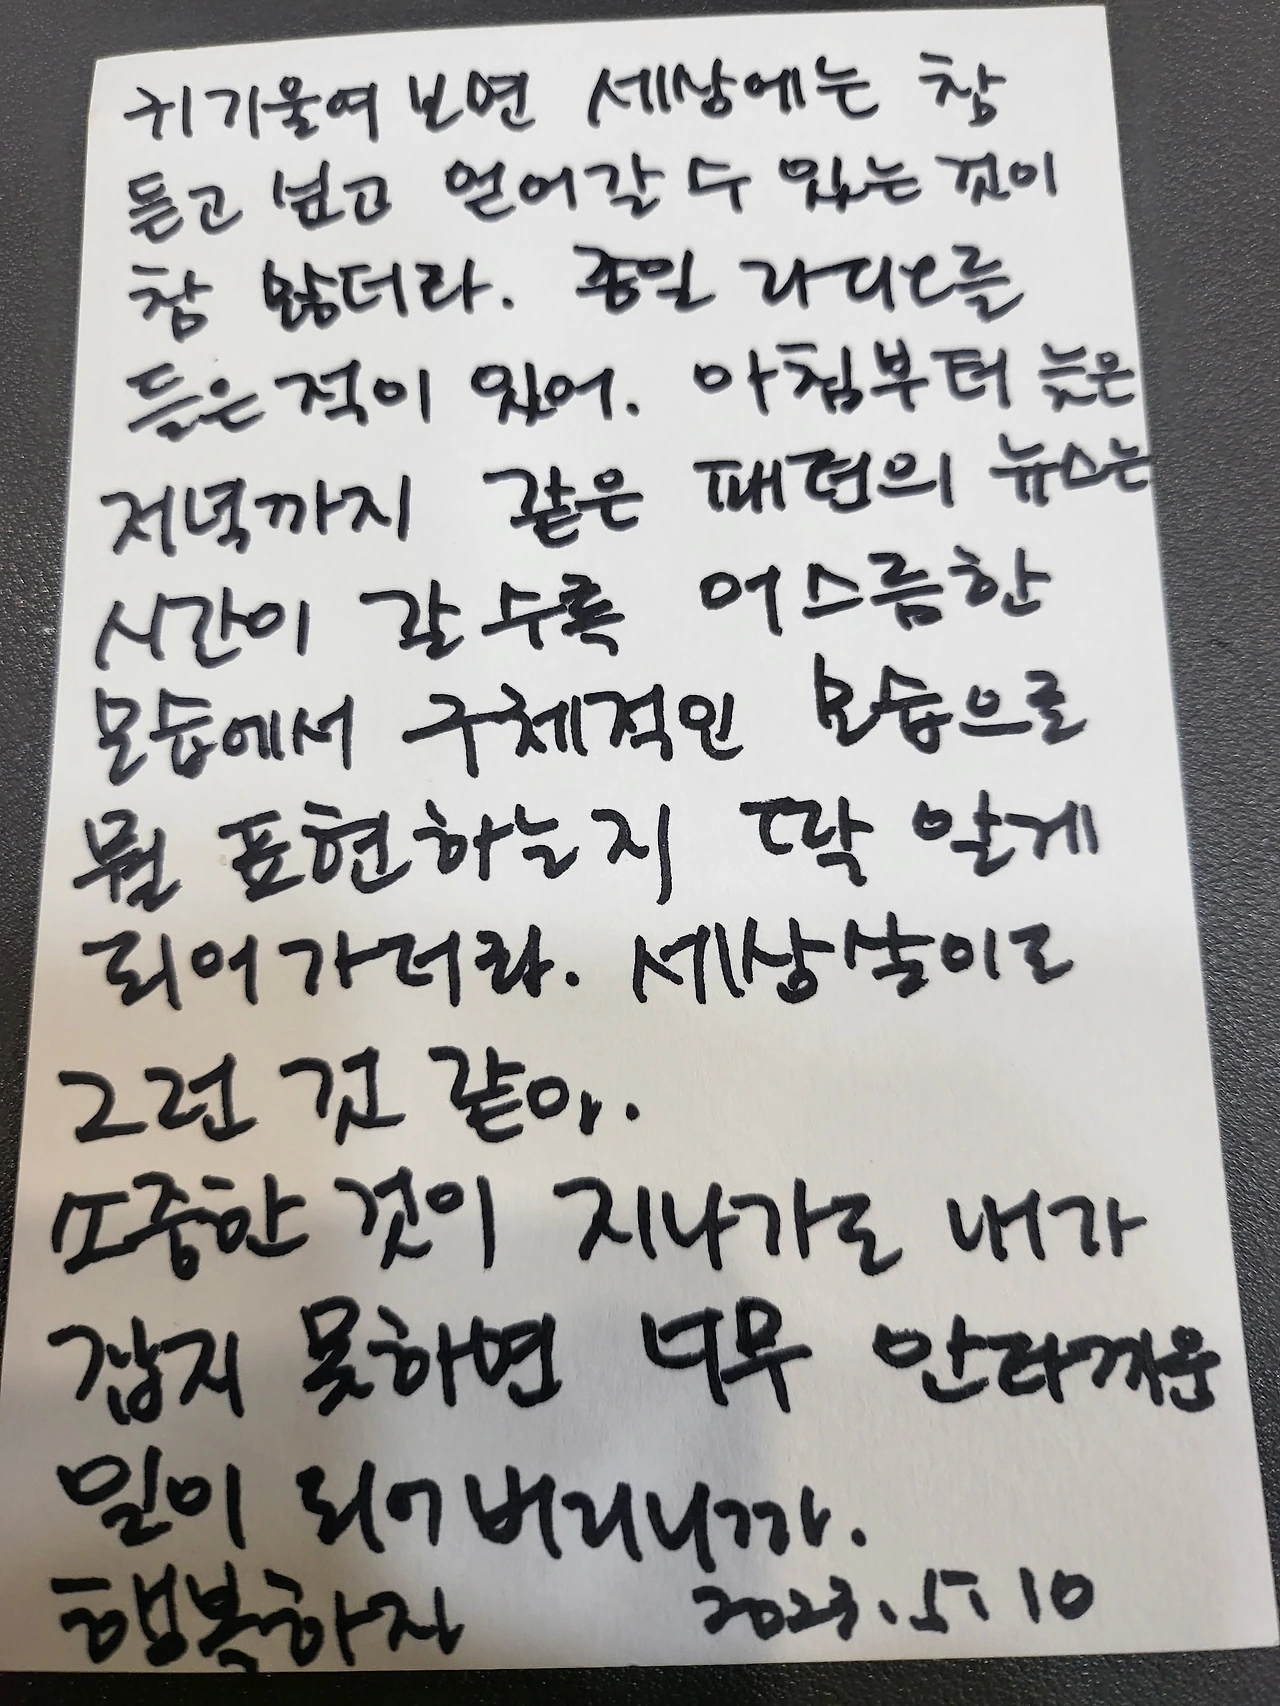 귀기울여 보면 세상에는 참
듣고 보고 얻어갈 수 있는 것이
참 많더라. 종일 라디오를
들은 적이 있어. 아침부터 늦은
저녁까지 같은 패턴의 뉴스는
시간이 갈수록 어스름한
모습에서 구체적인 모습으로
뭘 표현하는지 딱 알게
되어가더라. 세상살이도
그런 것 같아.
소중한 것이 지나가도 내가
잡지 못하면 너무 안타까운
일이 되어버리니까.
행복하자 2023.5.10